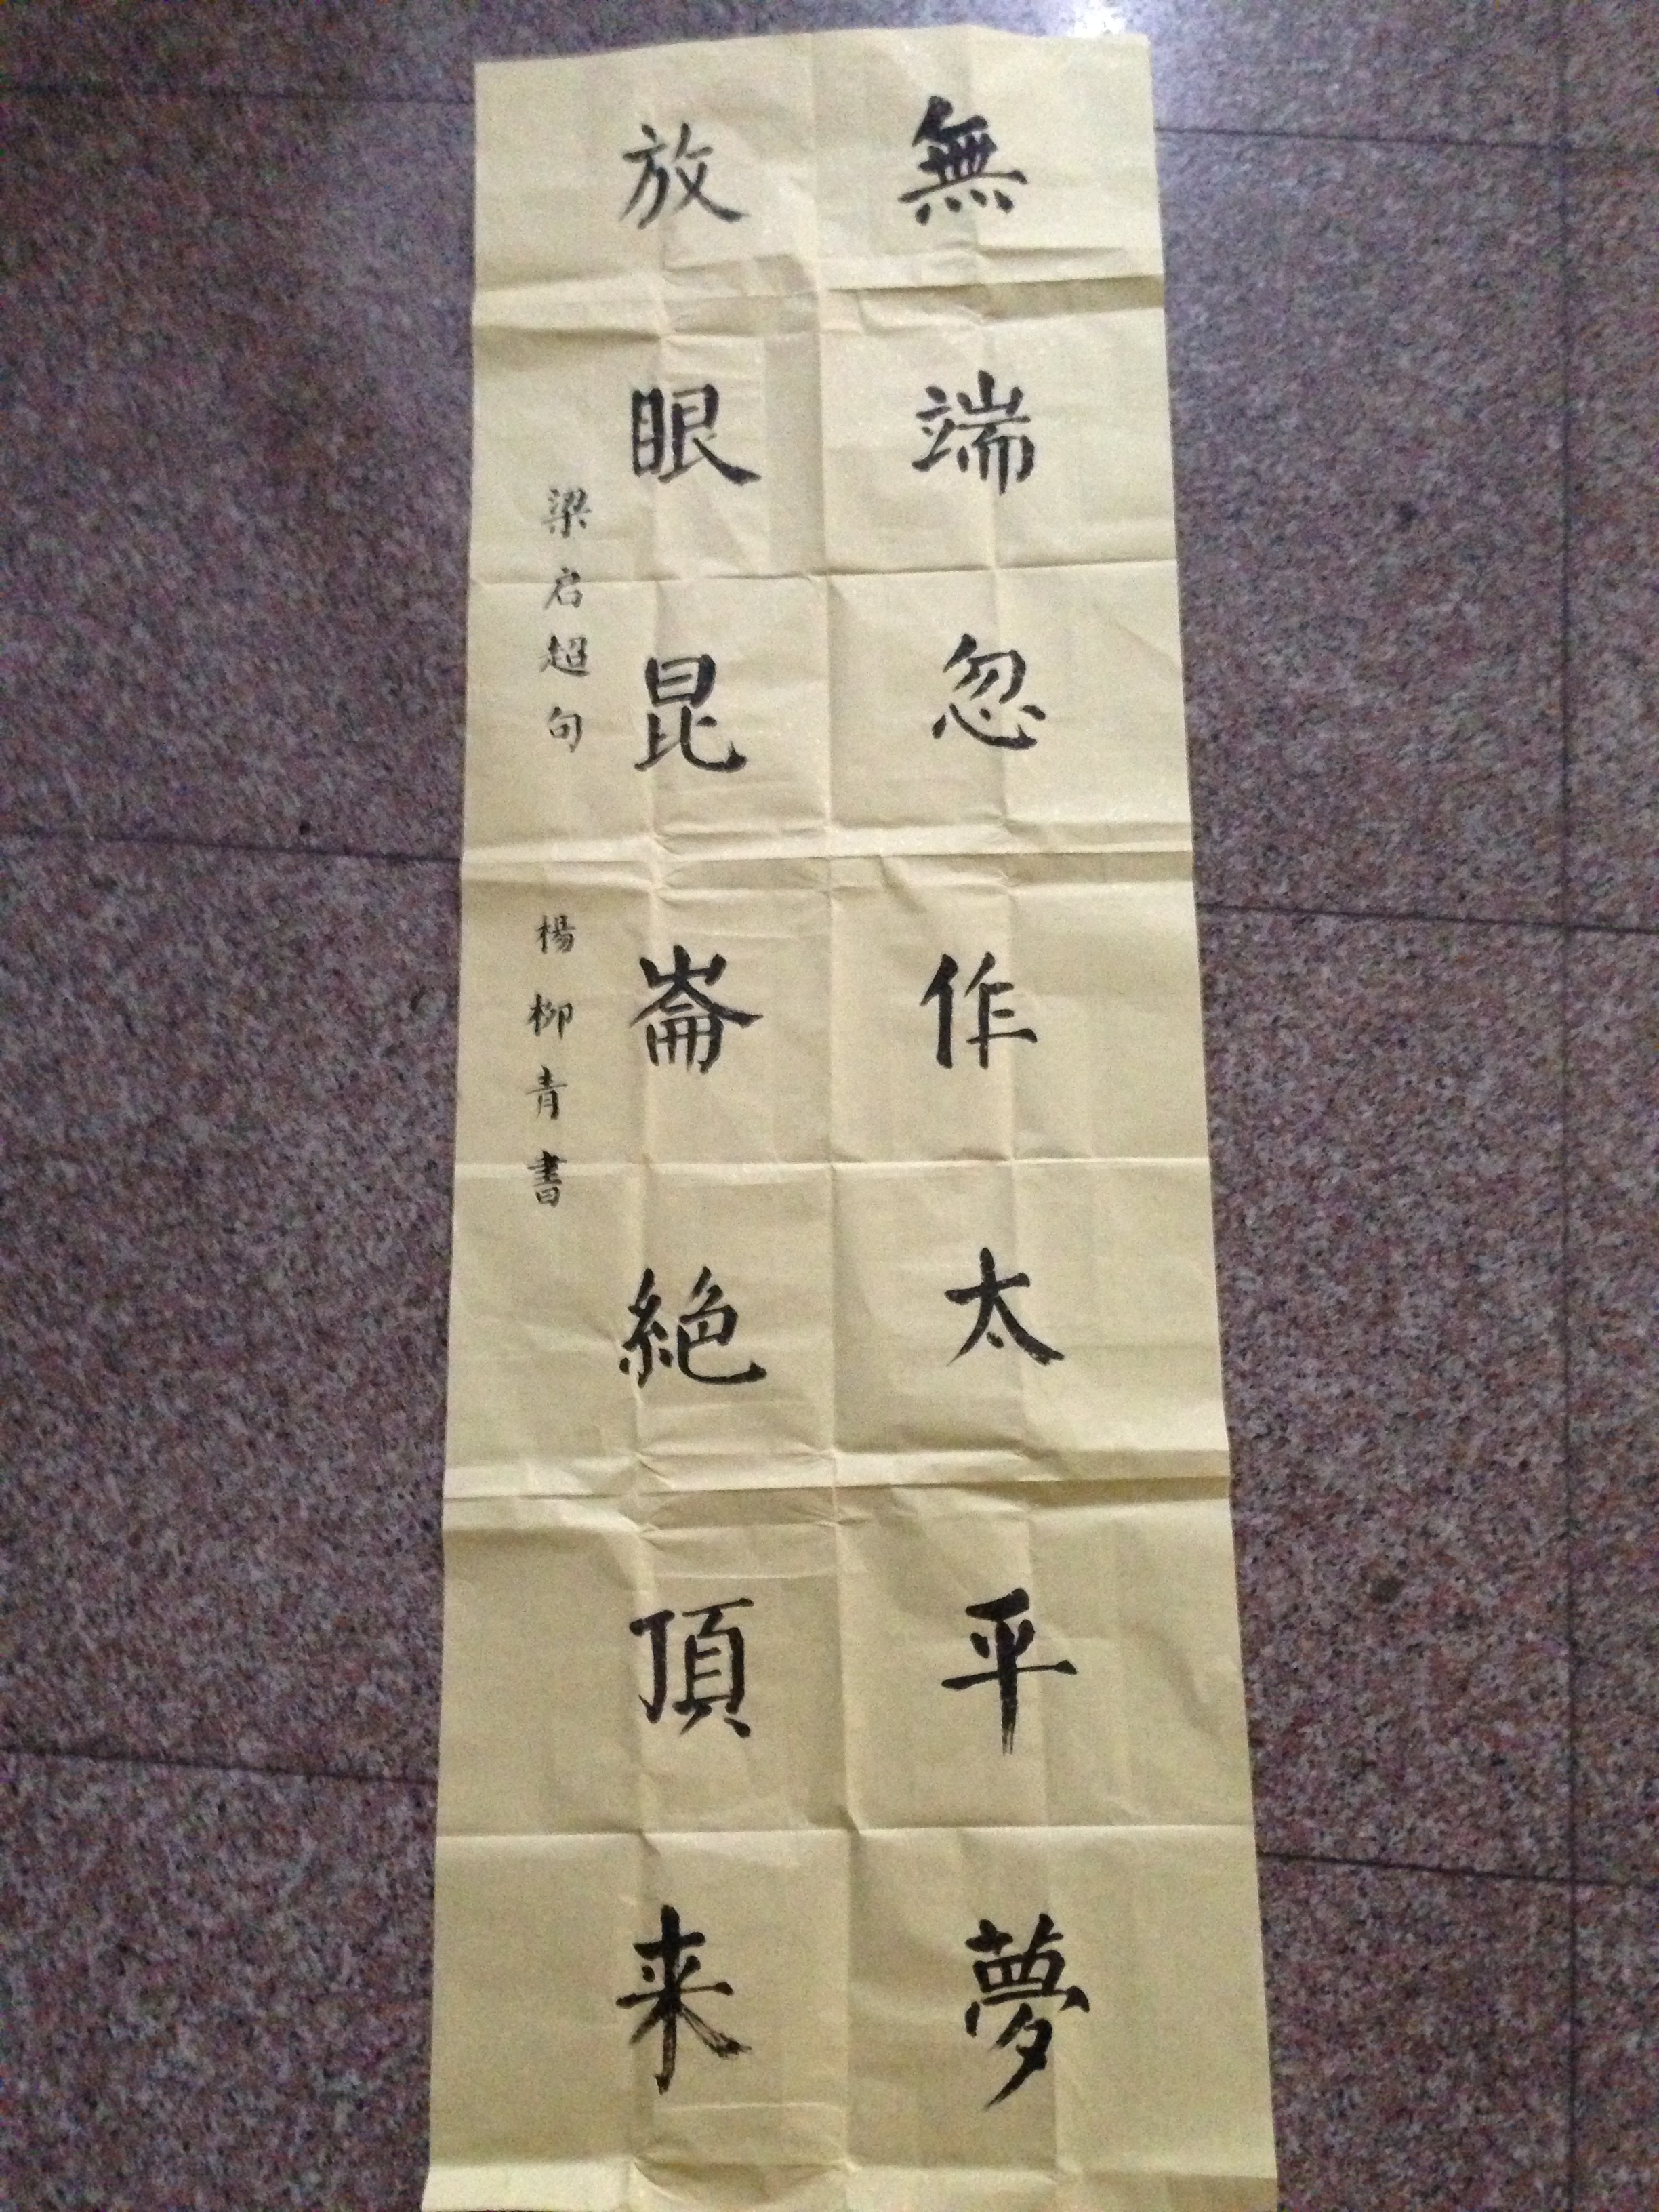 無端忽作太平夢
放眼昆崙絶頂来
梁启超句
楊柳青書